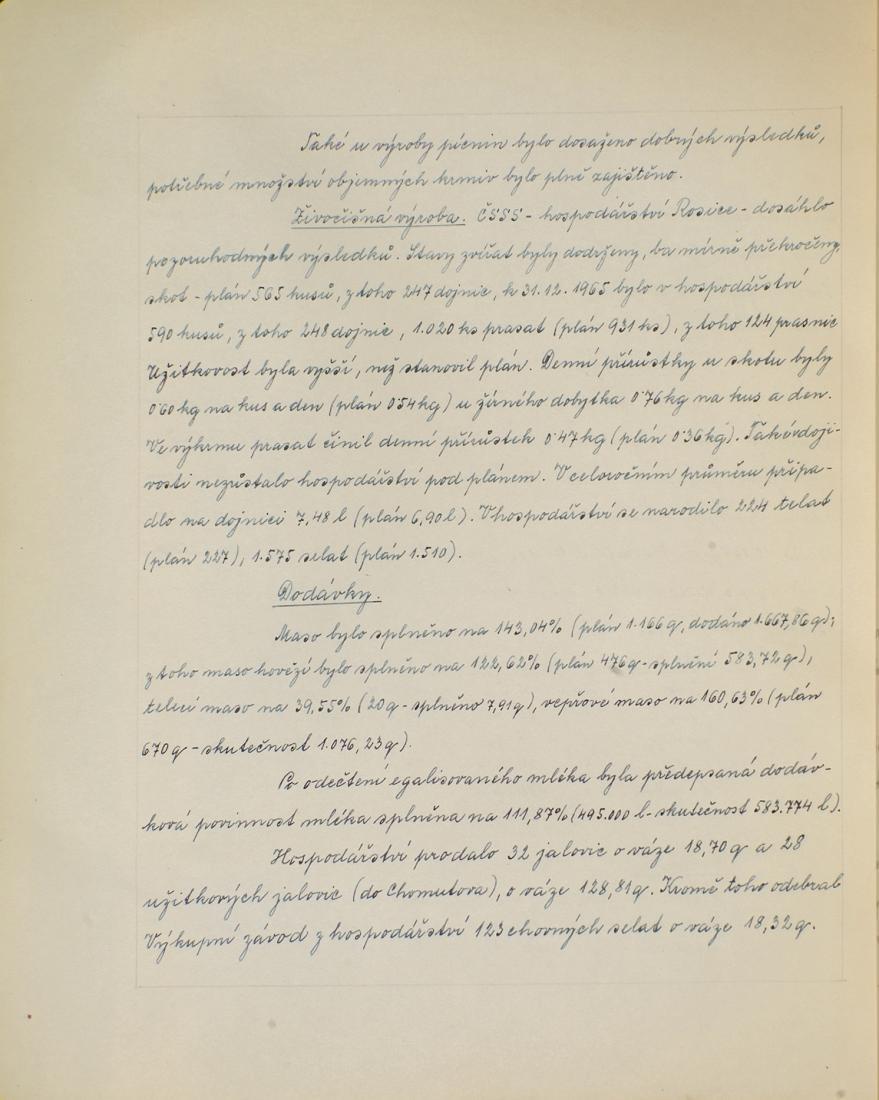 Také u výroby pícnin bylo dosaženo dobrých výsledků,
potřebné množství objemných krmiv bylo plně zajištěno.
Živočišná výroba. ČSSS - hospodářství Rosice - dosáhlo
pozoruhodných výsledků. Stavy zvířat byly dodrženy, ba mírně překročeny,
skot - plán 565 kusů, z toho 247 dojnic, k 31.12.1965 bylo v hospodářství
590 kusů, z toho 248 dojnic, 1.020 ks prasat (plán 931 ks), z toho 124 prasnic
Užitkovost byla vyšší, než stanovil plán. Denní přírůstky u skotu byly
0'60 kg na kus a den (plán 0'54 kg) u žírného dobytka 0'76 kg na kus a den.
Ve výkrmu prasat činil denní přírůstek 0'47 kg (plán 0'36 kg). Také v doji-
vosti nezůstalo hospodářství pod plánem. V celoročním průměru připa-
dlo na dojnici 7,48 l (plán 6,90 l). V hospodářství se narodilo 224 telat
(plán 227), 1.575 selat (plán 1.510).
Dodávky.
Maso bylo splněno na 143,04% (plán 1.166 q, dodáno 1.667,86 q);
z toho maso hovězí bylo splněno na 122,62% (plán 476 q - splnění 583,72 q),
telecí maso na 39,55% (20 q - splněno 7,91 q), vepřové maso na 160,63% (plán
670 q - skutečnost 1.076,23 q).
Po odečtení egalisovaného mléka byla předepsaná dodáv-
ková povinnost mléka splněna na 111,87% (495.000 l - skutečnost 583.774 l).
Hospodářství prodalo 32 jalovic o váze 18,70 q a 28
užitkových jalovic (do Chomutova), o váze 128,81 q. Kromě toho odebral
Výkupní závod z hospodářství 123 chovných selat o váze 18,32 q.